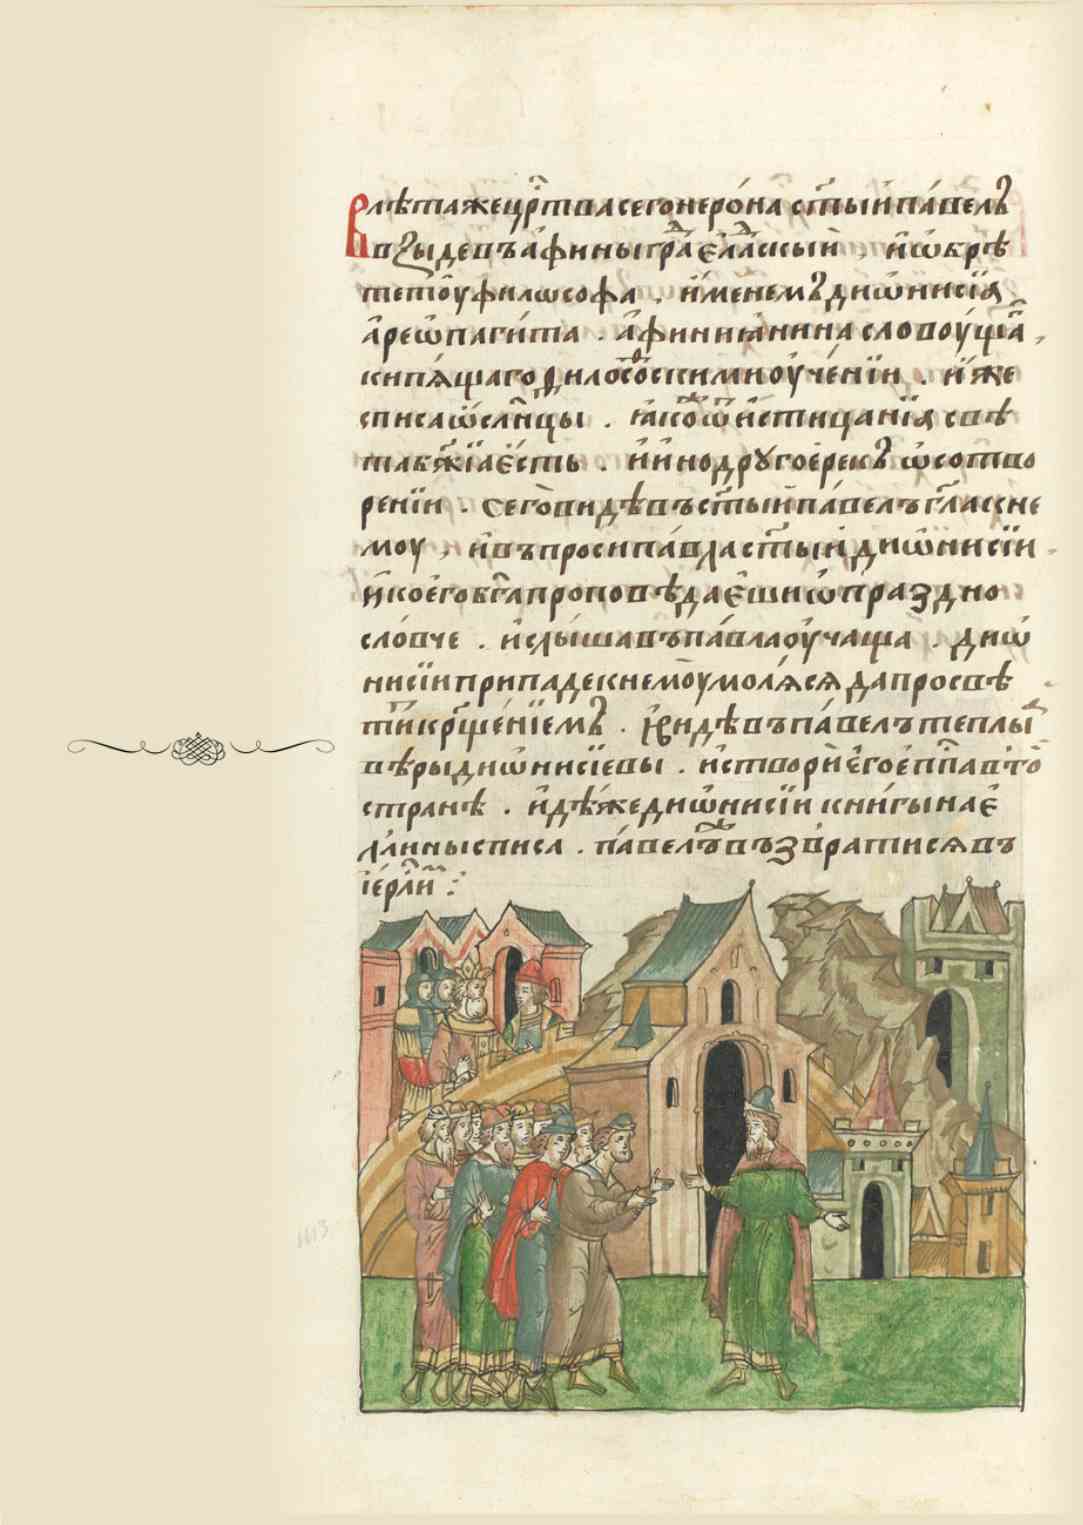 В лѣта же цр҃тва сего нерона ст҃ыи павелъ
взыде въ афины гра҃ еладскыи , и ѡбрѣ
те тоу филѡсофа . именемъ диѡнисїа
ареѡпагита . афиниꙗнина словоуща҃ ,
кипѧщаго филосоѳскими оученїи . иже
списа ѡ слн҃цы . ꙗко ѿ истицанїа свѣ
та бж҃їа есть . и ино другое рекъ ѡ сотво
ренїи . сего видѣвъ ст҃ыи павелъ гл҃асне
моу , и въпроси павла ст҃ыи диѡнисїи
и коего бг҃а проповѣдаеши ѡ праздно
словче . и слышавъ павла оучаща . диѡ
нисїи припаде к немоу молѧсѧ да просвѣ
ти҃ кр҃щенїемъ . и видѣвъ павелъ теплы
вѣры диѡнисїевы . и створи его еп҃па в то
странѣ . идѣже диѡнисїи книгы на е
ланны списа . павел въ възвратисѧ въ
іерл҃и :
1613